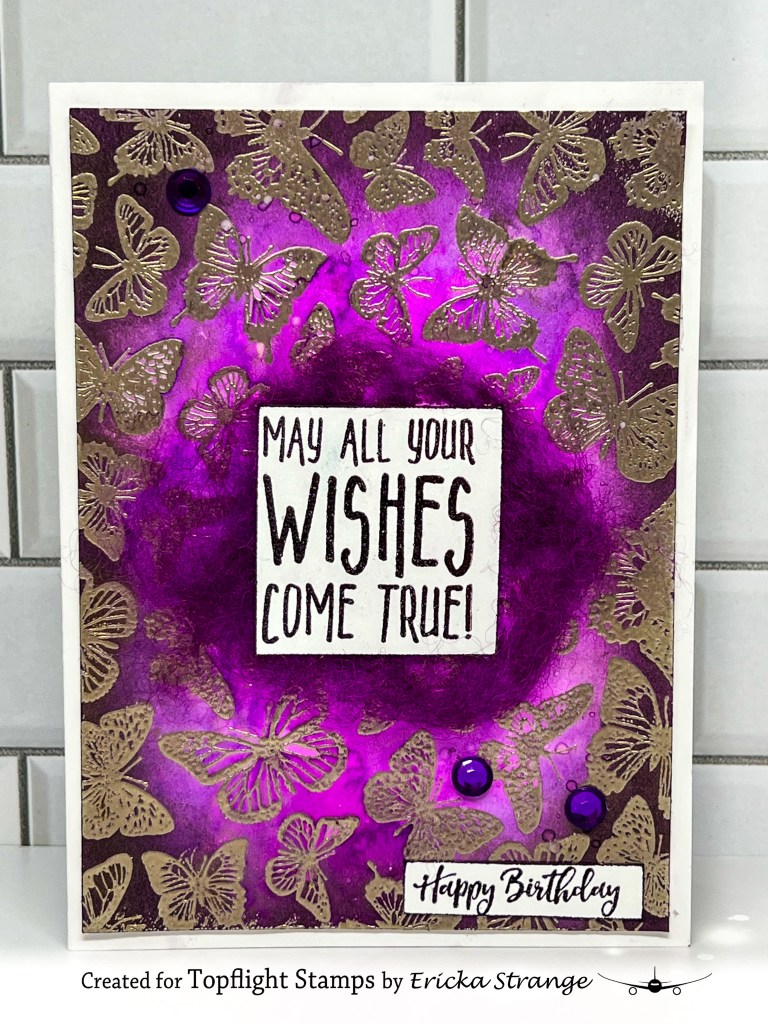 MAY ALL YOUR
WISHES
COME TRUE!
Happy Birthday
Created for Topflight Stamps by Ericka Strange